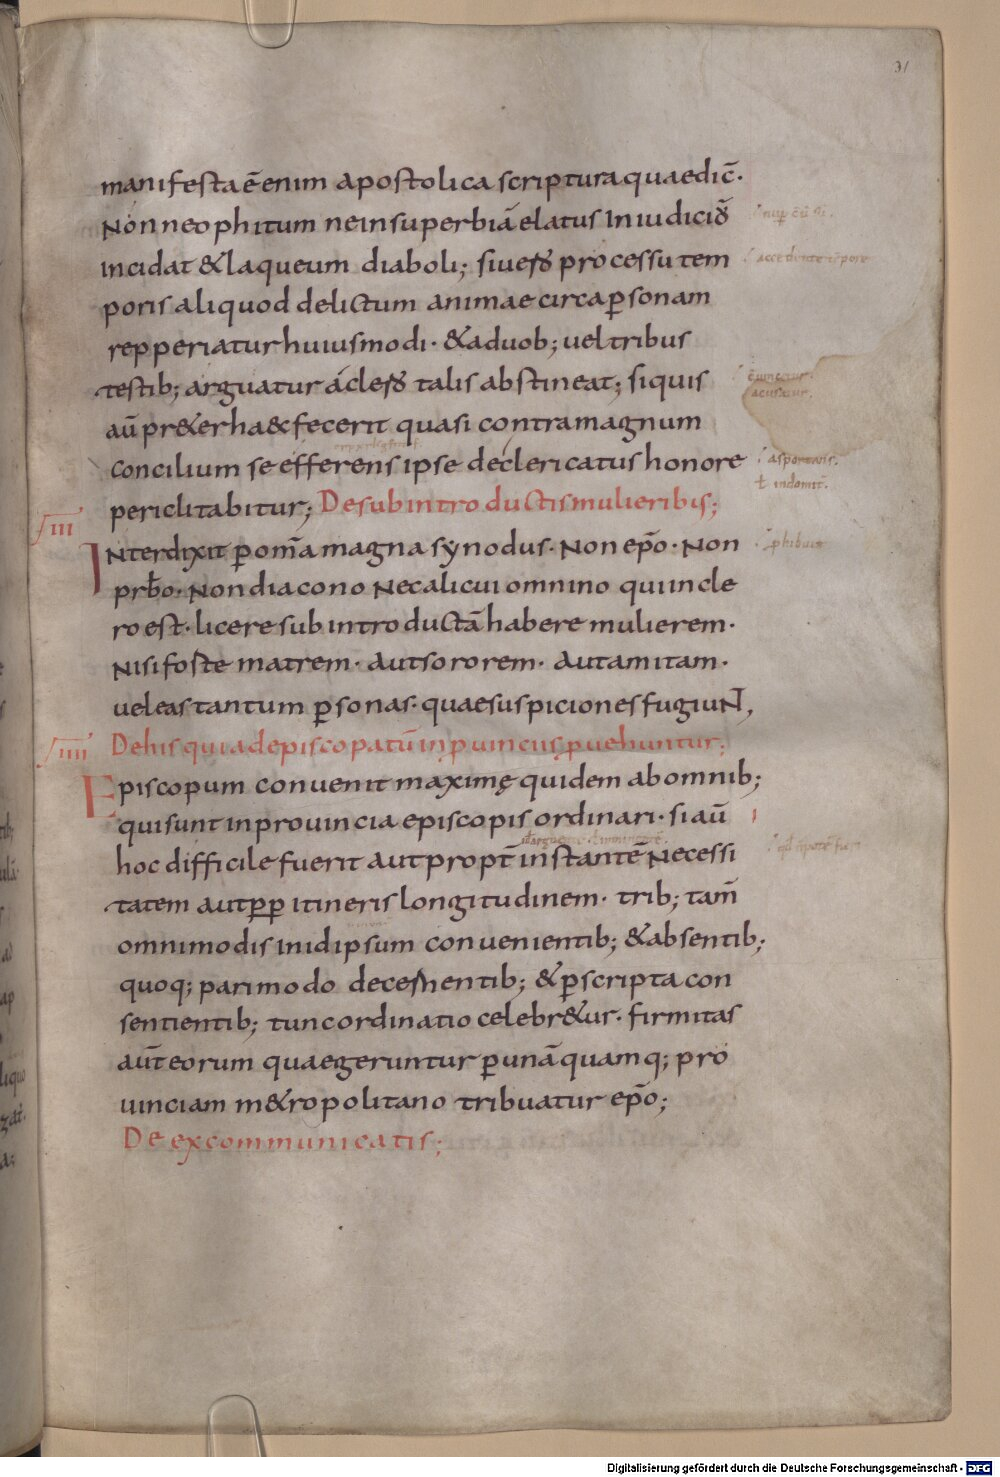 31
manifesta ē enim apostolica scriptura quae dic̄·
Non neophitum ne in superbiā elatus In iudiciū
incidat & laqueum diaboli; siue processu tem
poris aliquod delictum animae circa p̱sonam
repperiatur huiusmodi· & a duob; uel tribus
testib; arguatur a talis abstineat; si quis
aū pr&er ha&c fecerit quasi contra magnum
concilium se efferens ipse de clericatus honore
periclitabitur; De subintroductis mulieribus;
III
Interdixit p̱ om̄a magna synodus· Non ep̄o· Non
prb̄o· Non diacono Nec alicui omnino qui in cle
ro est· licere subintroductā habere mulierem·
Nisi foste matrem· aut sororem· aut amitam·
uel eas tantum p̱sonas· quae suspiciones fugiuNT,
IIII
De his qui ad episcopatū in puincus puehuntur;
Episcopum conuenit maximę quidem ab omnib;
qui sunt in prouincia episcopis ordinari· si aū
hoc difficile fuerit aut propt̄ instantē Necessi
tatem aut pp itineris longitudinem· trib; tam̄
omnimodis in id ipsum conuenientib; & absentib;
quoq; pari modo decernentib; & p̱ scripta con
sentientib; tunc ordinatio celebr&ur· firmitas
aūt eorum quae geruntur p̱ unā quamq; pro
uinciam m&ropolitano tribuatur ep̄o;
De excommunicatis;
accedente
asportans·
ł indomit̄·
Digitalisierung gefördert durch die Deutsche Forschungsgemeinschaft - DFG